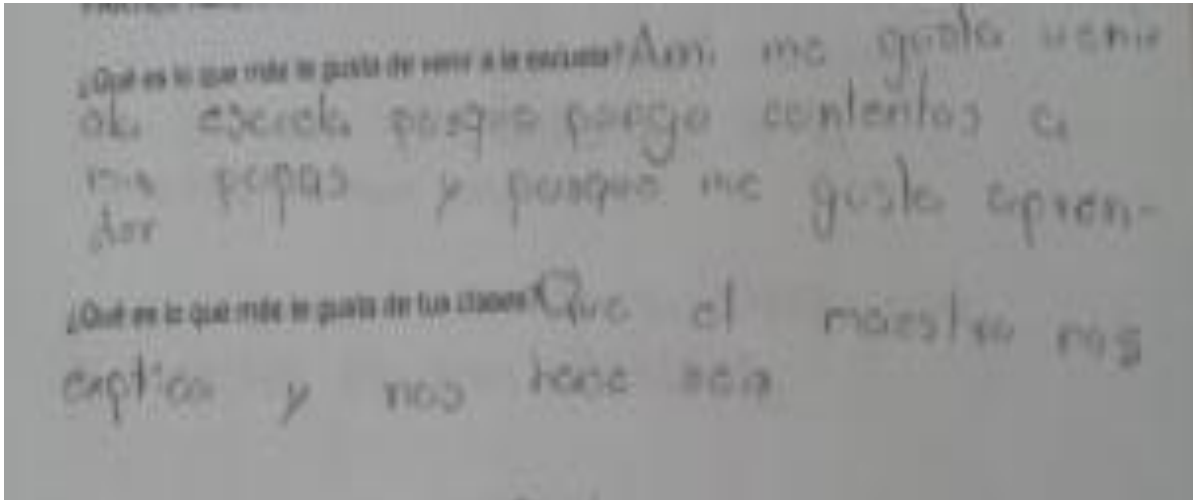 ¿Qué es lo que más te gusta de venir a la escuela? Ami me gusta venir
ala escuela porque pongo contentos a
mis papas y porque me gusta apren-
der
¿Qué es lo que más te gusta de tus clases? Que el maestro nos
explica y nos hace